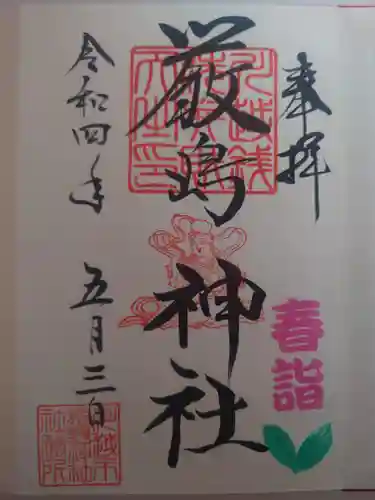 奉拝
春詣
厳島神社
令和四年 五月三日